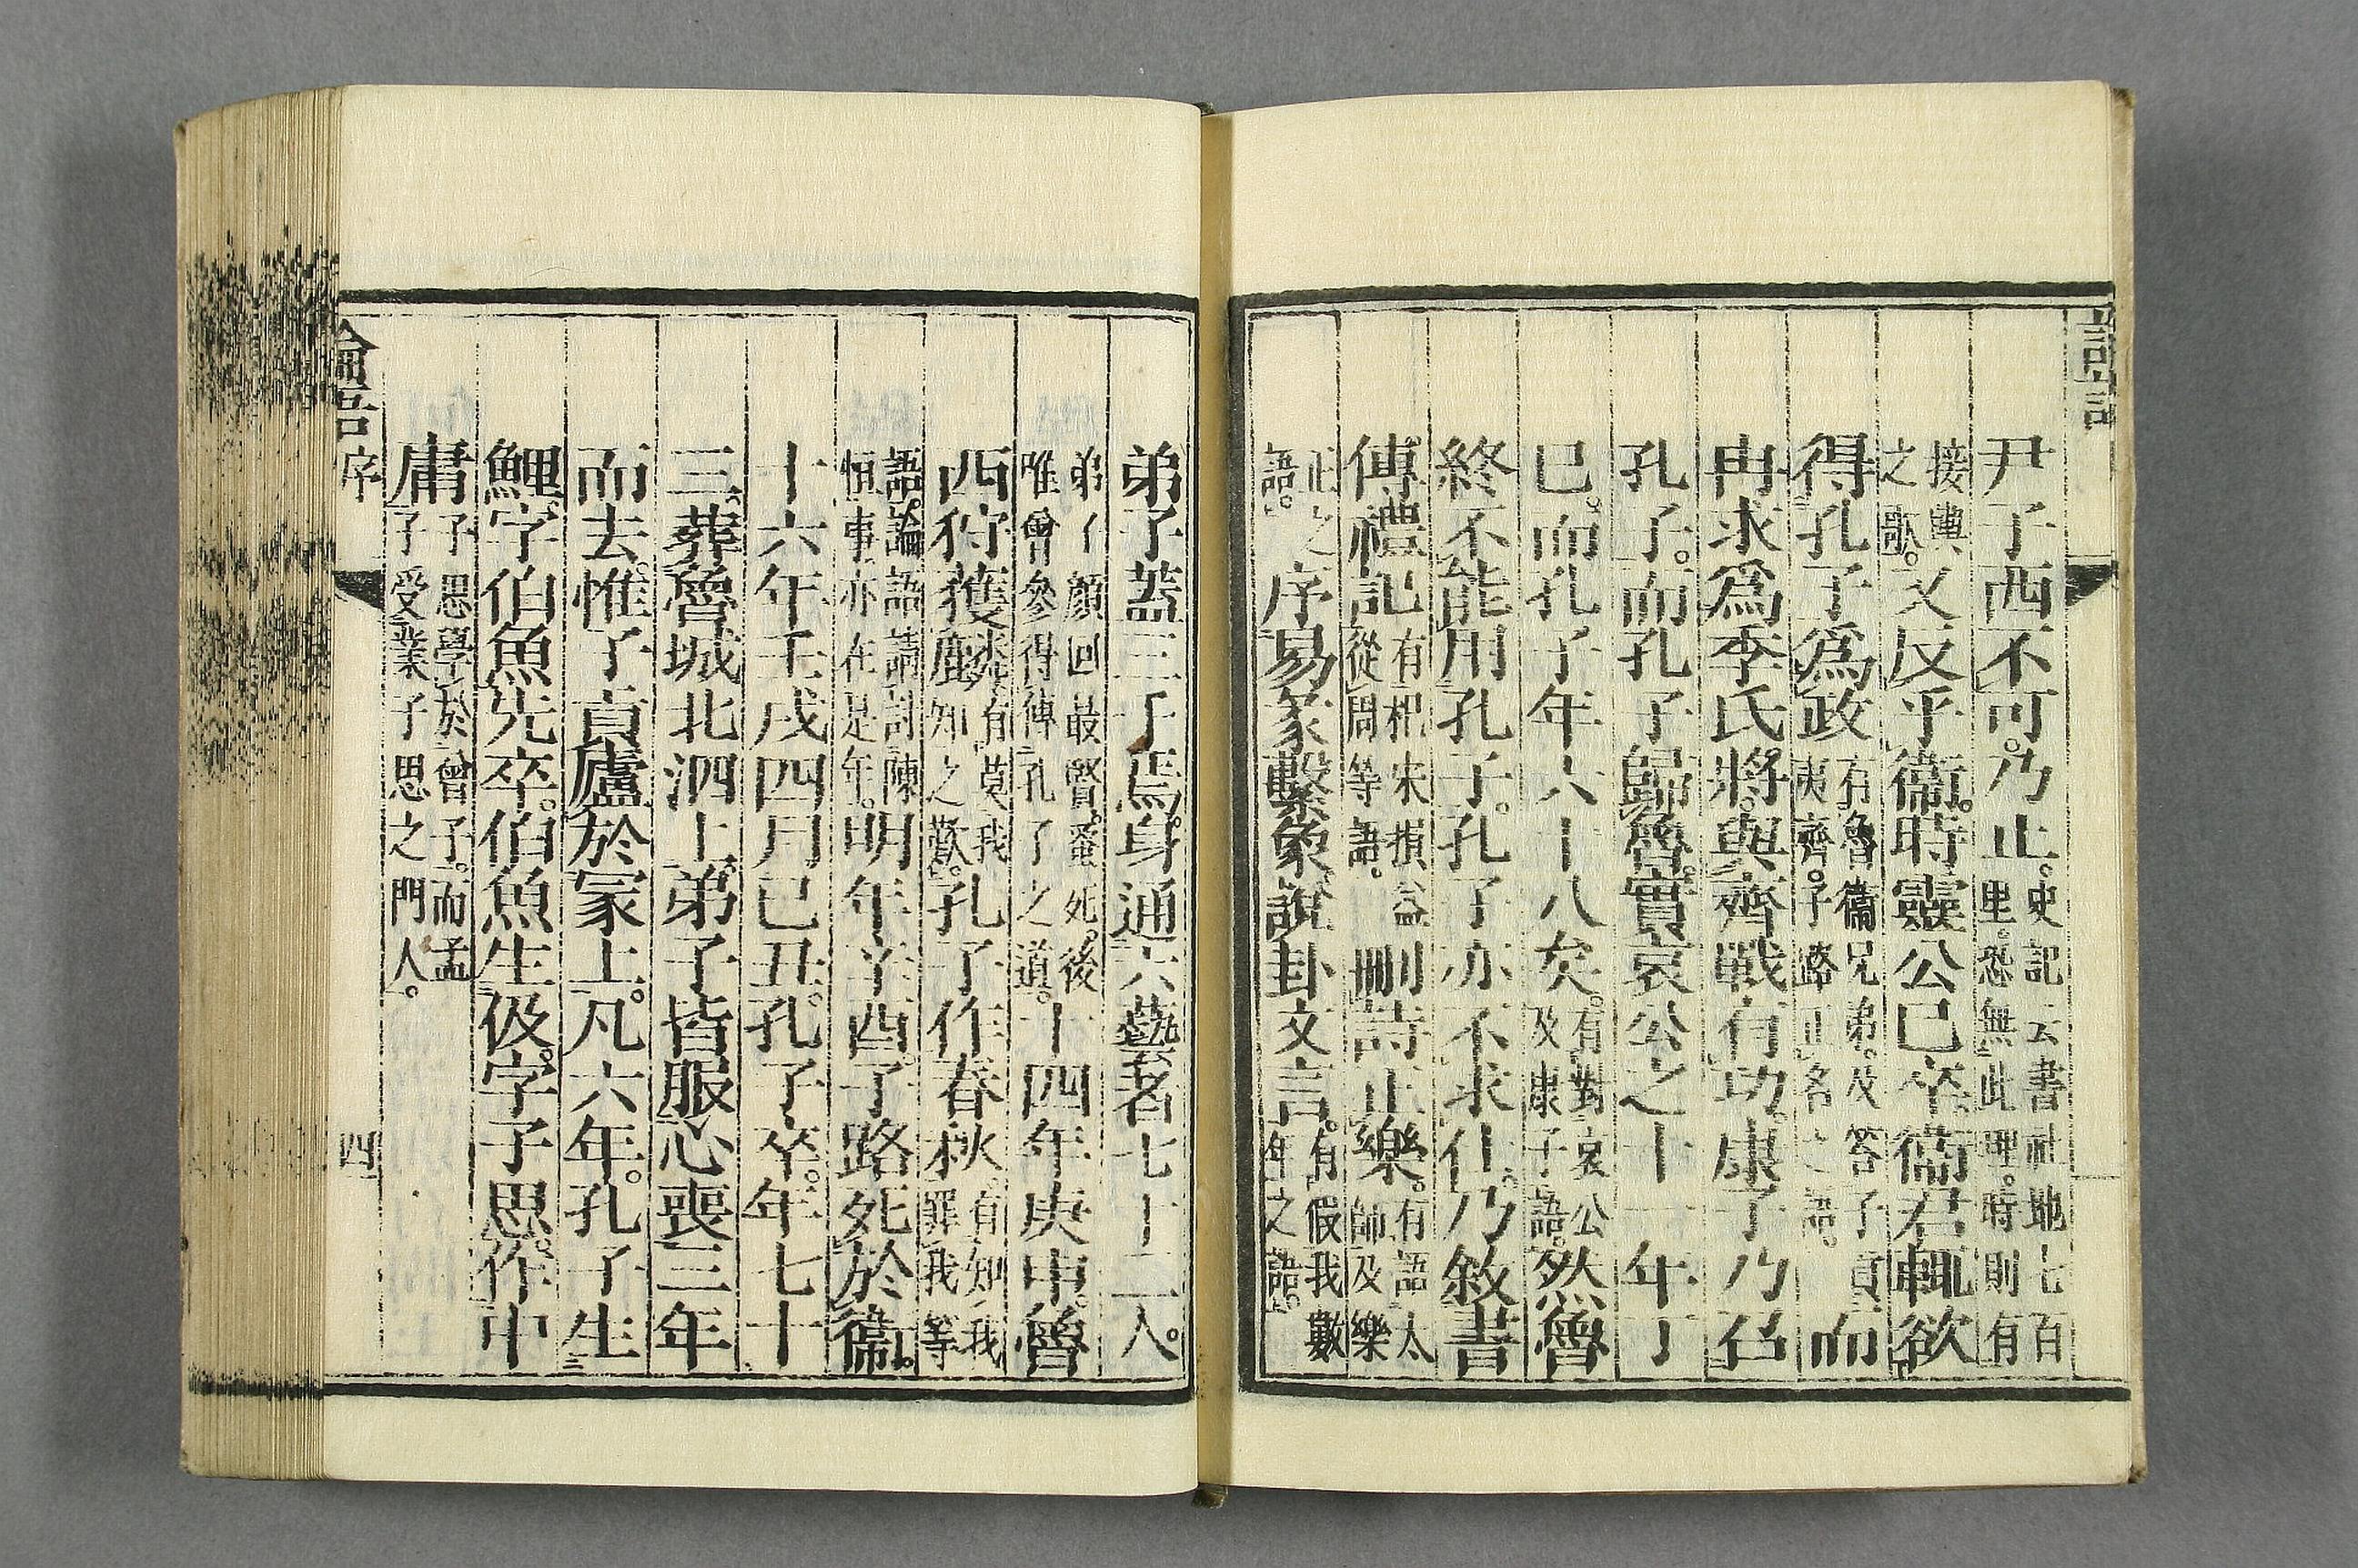 尹子西不可。乃止。史記云書社地七百里。恐無此理。時則有
接輿之歌。又反乎衞。時靈公已卒。衞君輒欲
得孔子爲政有魯衞兄弟。及答子貢夷齊。子路正名之語。而
冉求爲季氏將。與齊戰有功。康子乃召
孔子。而孔子歸魯。實哀公之十一年丁
巳。而孔子年六十八矣。有對哀公及康子語。然魯
終不能用孔子。孔子亦不求仕。乃敘書
傳禮記有杞宋損益從周等語。刪詩正樂。有語太師及樂
正之語。序易彖繫象說卦文言。有假我數年之語。
弟子蓋三千焉。身通六藝者七十二人。
弟子顏回最賢。蚤死。後唯曾參得傳孔子之道。十四年庚申。魯
西狩獲麟有莫我知之歎。孔子作春秋。有知我罪我等
語。論語請討陳恒事亦在是年。明年辛酉。子路死於衞。
十六年壬戌四月己丑。孔子卒。年七十
三。葬魯城北泗上。弟子皆服心喪三年
而去。惟子貢廬於冢上。凡六年。孔子生
鯉。字伯魚。先卒。伯魚生伋。字子思。作中
庸。子思學於曾子。而孟子受業子思之門人。
論語序 四